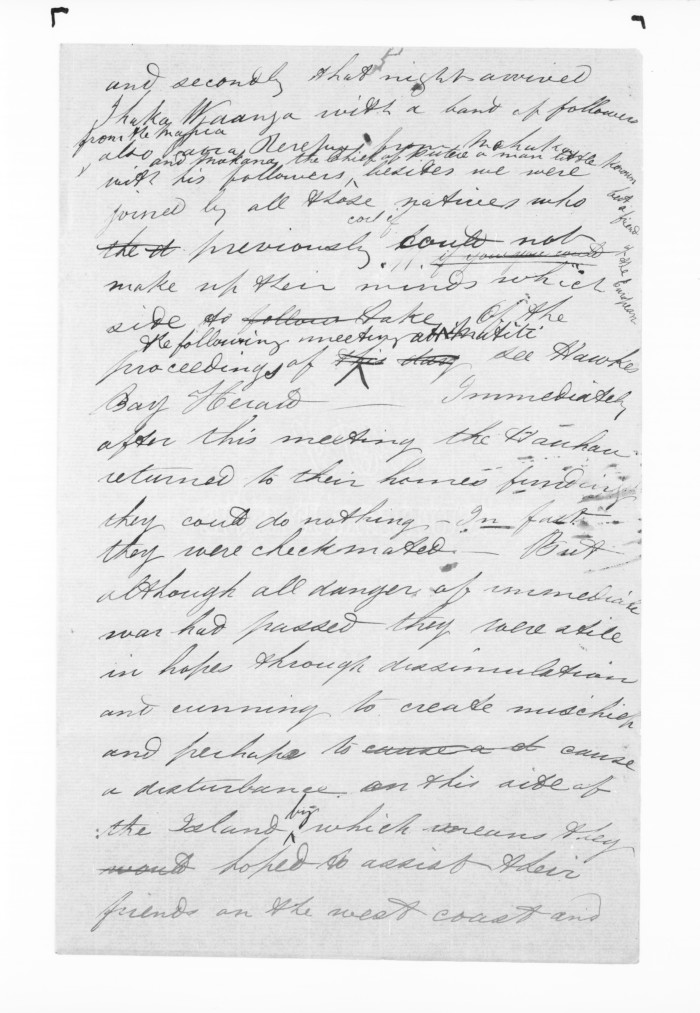 and secondly that night arrived
Ihaka Whaanga with a band of followers
from the Mahia
also came from
and the Chief of a man little known
but a friend of the European
with his followers, besides we were
joined by all those natives who
previously could not
make up their minds which
side to follow take. Of the
the following meeting at Matiti
proceedings of this day see Hawkes
Bay Herald — Immediately
after this meeting the Hauhau
returned to their homes finding
they could do nothing - In fact
they were checkmated — But
although all danger of immediate
war had passed they were still
in hopes through dissimulation
and cunning to create mischief
and perhaps to cause a d cause
a disturbance on this side of
the Island by which means they
would hoped to assist their
friends on the west coast and